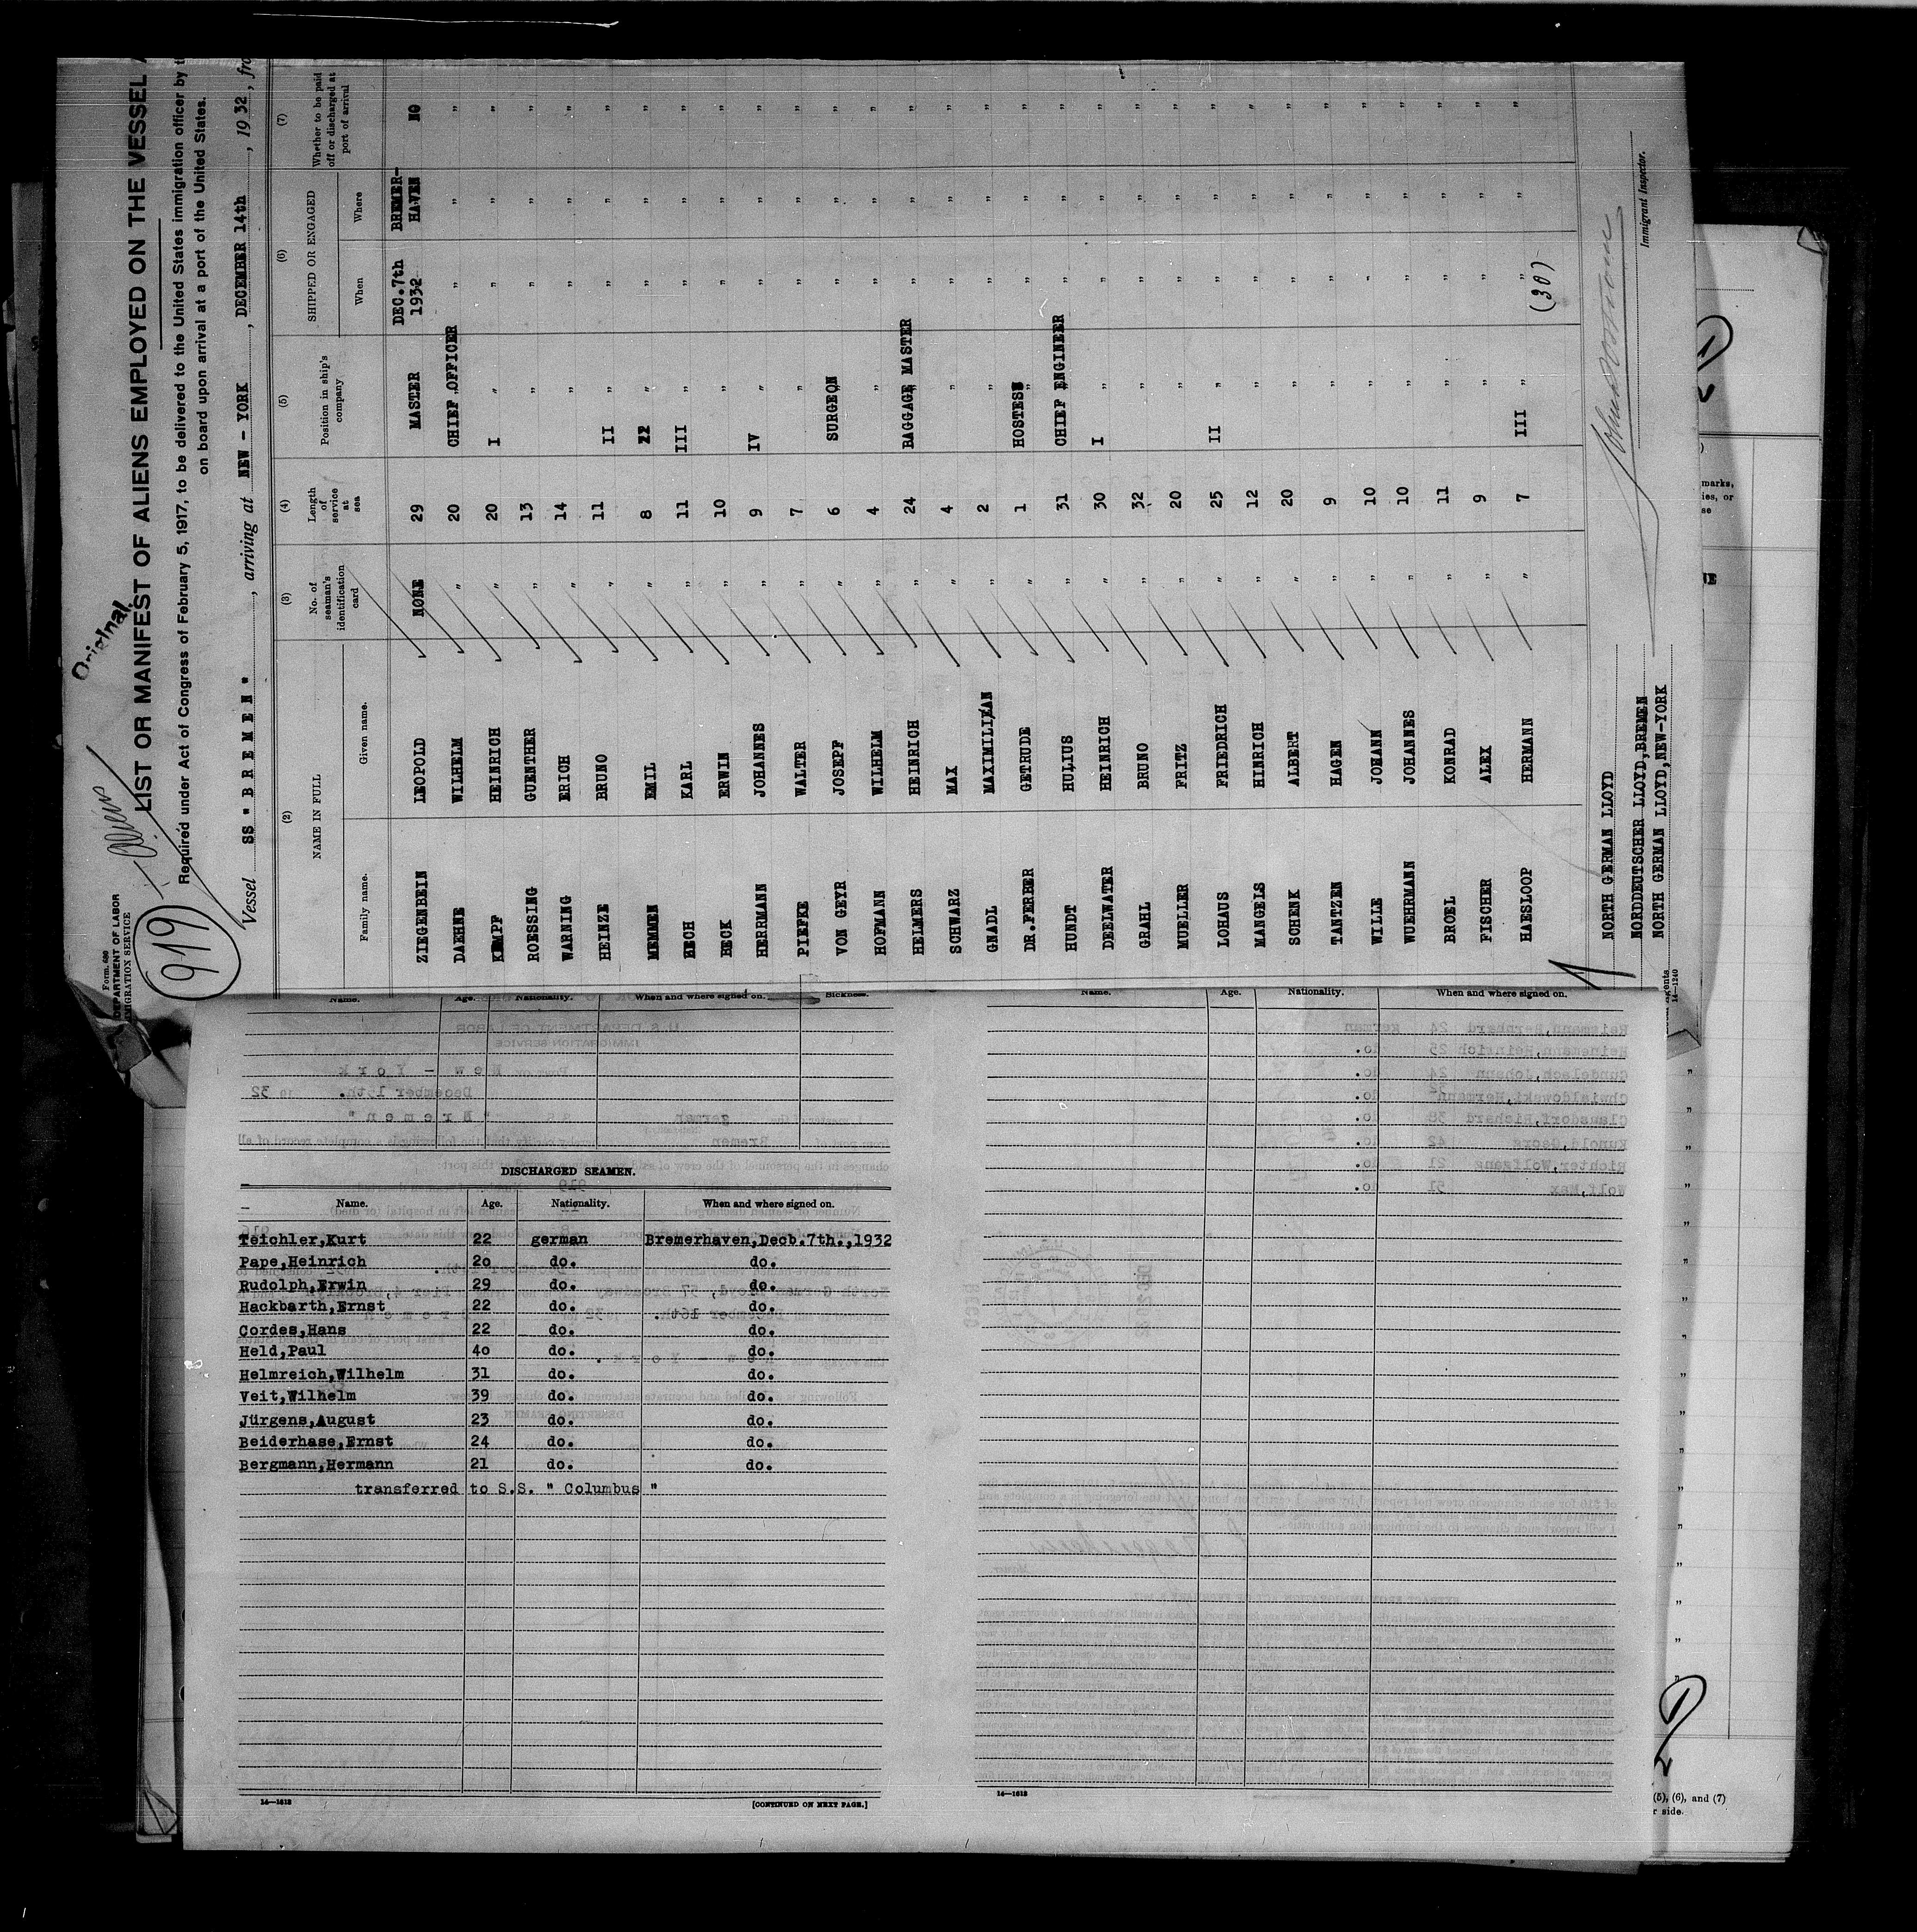 Original
Form 680
DEPARTMENT OF LABOR
IMMIGRATION SERVICE
919
Aliens
LIST OR MANIFEST OF ALIENS EMPLOYED ON THE VESSEL
Required under Act of Congress of February 5, 1917, to be delivered to the United States immigration officer by
on board upon arrival at a port of the United States.
Vessel SS " B R E M E N " , arriving at NEW - YORK , DECEMBER 14th , 1932, fro
(2) (3) (4) (5) (6) (7)
NAME IN FULL No. of seaman's identification card Length of service at sea Position in ship's company SHIPPED OR ENGAGED Whether to be paid off or discharged at port of arrival
Family name. Given name. When Where
ZIEGENBEIN LEOPOLD NONE 29 MASTER DEC.7th 1932 BREMER-HAVEN NO
DAEHNE WILHELM " 20 CHIEF OFFICER " " "
KEMPF HEINRICH " 20 I " " " "
ROESSING GUENTHER " 13 " " " "
WARNING ERICH " 14 " " " "
HEINZE BRUNO " 11 II " " " "
MEMMEN EMIL " 8 22 " " " "
ECH KARL " 11 III " " " "
BECK ERWIN " 10 " " " "
HERRMANN JOHANNES " 9 IV " " " "
PIEFKE WALTER " 7 " " " "
VON GEYR JOSEPF " 6 SURGEON " " "
HOFMANN WILHELM " 4 " " " "
HELMERS HEINRICH " 24 BAGGAGE MASTER " " "
SCHWARZ MAX " 4 " " " "
GNADL MAXIMILIAN " 2 " " " "
DR.FERBER GETRUDE " 1 HOSTESS " " "
HUNDT HULIUS " 31 CHIEF ENGINEER " " "
DEELWATER HEINRICH " 30 I " " " "
GRAHL BRUNO " 32 " " " "
MUELLER FRITZ " 20 " " " "
LOHAUS FRIEDRICH " 25 II " " " "
MANGELS HINRICH " 12 " " " "
SCHENK ALBERT " 20 " " " "
TANTZEN HAGEN " 9 " " " "
WILLE JOHANN " 10 " " " "
WUEHRMANN JOHANNES " 10 " " " "
BROEL KONRAD " 11 " " " "
FISCHER ALEX " 9 " " " "
HAESLOOP HERMANN " 7 III " " " "
(30)
NORTH GERMAN LLOYD
NORDDEUTSCHER LLOYD,BREMEN
NORTH GERMAN LLOYD,NEW-YORK
Immigrant Inspector.
14-1240
Name. Age. Nationality. When and where signed on. Sickness.
Name. Age. Nationality. When and where signed on.
DISCHARGED SEAMEN.
Name. Age. Nationality. When and where signed on.
Teichler,Kurt 22 german Bremerhaven,Decb.7th.,1932
Pape,Heinrich 2o do. do.
Rudolph,Erwin 29 do. do.
Hackbarth,Ernst 22 do. do.
Cordes,Hans 22 do. do.
Held,Paul 4o do. do.
Helmreich,Wilhelm 31 do. do.
Veit,Wilhelm 39 do. do.
Jürgens,August 23 do. do.
Beiderhase,Ernst 24 do. do.
Bergmann,Hermann 21 do. do.
transferred to S.S. " Columbus "
14—1612
[CONTINUED ON NEXT PAGE.]
14—1612
(5), (6), and (7)
r side.